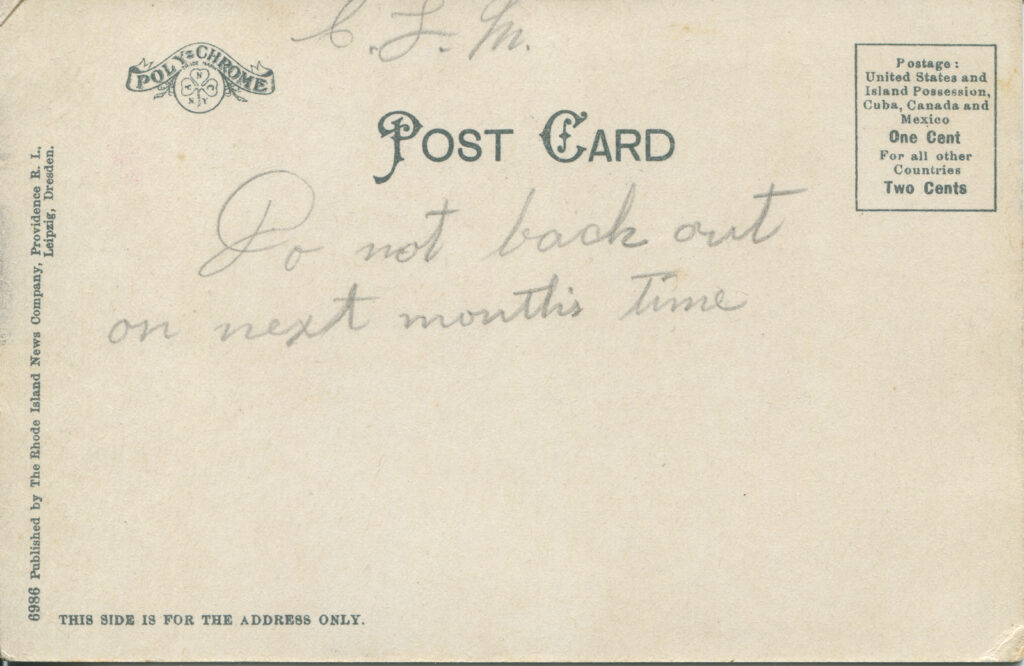 C. L. M.
POLY-CHROME
TRADE MARK
A N C
N.Y
POST CARD
Postage :
United States and
Island Possession,
Cuba, Canada and
Mexico
One Cent
For all other
Countries
Two Cents
Do not back out
on next months time
6986 Published by The Rhode Island News Company, Providence R. I.,
Leipzig, Dresden.
THIS SIDE IS FOR THE ADDRESS ONLY.